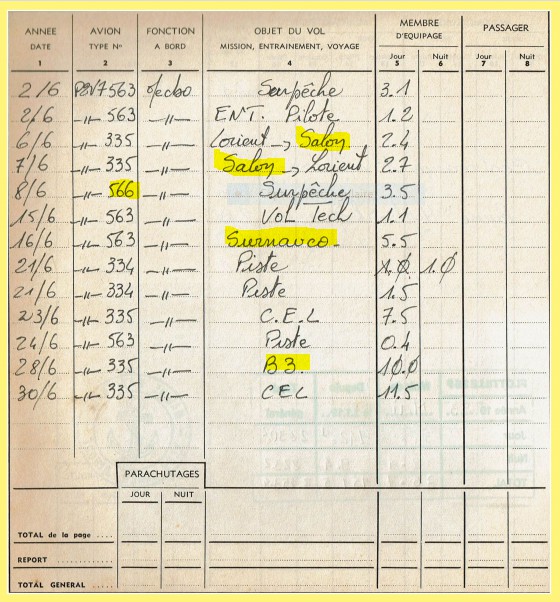 ANNÉE AVION FONCTION OBJET DU VOL MEMBRE D'ÉQUIPAGE PASSAGER
DATE TYPE N° A BORD MISSION, ENTRAINEMENT, VOYAGE Jour Nuit Jour Nuit
1 2 3 4 5 6 7 8
2/6 P2V7 563 Mecbo Surpêche 3.1
2/6 -"- 563 -"- ENT. Pilote 1.2
6/6 -"- 335 -"- Lorient -> Salon 2.4
7/6 -"- 335 -"- Salon -> Lorient 2.7
8/6 -"- 566 -"- Surpêche 3.5
15/6 -"- 563 -"- Vol Tech 1.1
16/6 -"- 563 -"- Surnavco 5.5
21/6 -"- 334 -"- Piste 1.0 1.0
21/6 -"- 334 -"- Piste 1.5
23/6 -"- 335 -"- C.E.L 7.5
24/6 -"- 563 -"- Piste 0.4
28/6 -"- 335 -"- B3. 10.0
30/6 -"- 335 -"- CEL 11.5
PARACHUTAGES
JOUR NUIT
TOTAL de la page ....
REPORT ...............
TOTAL GENERAL ......